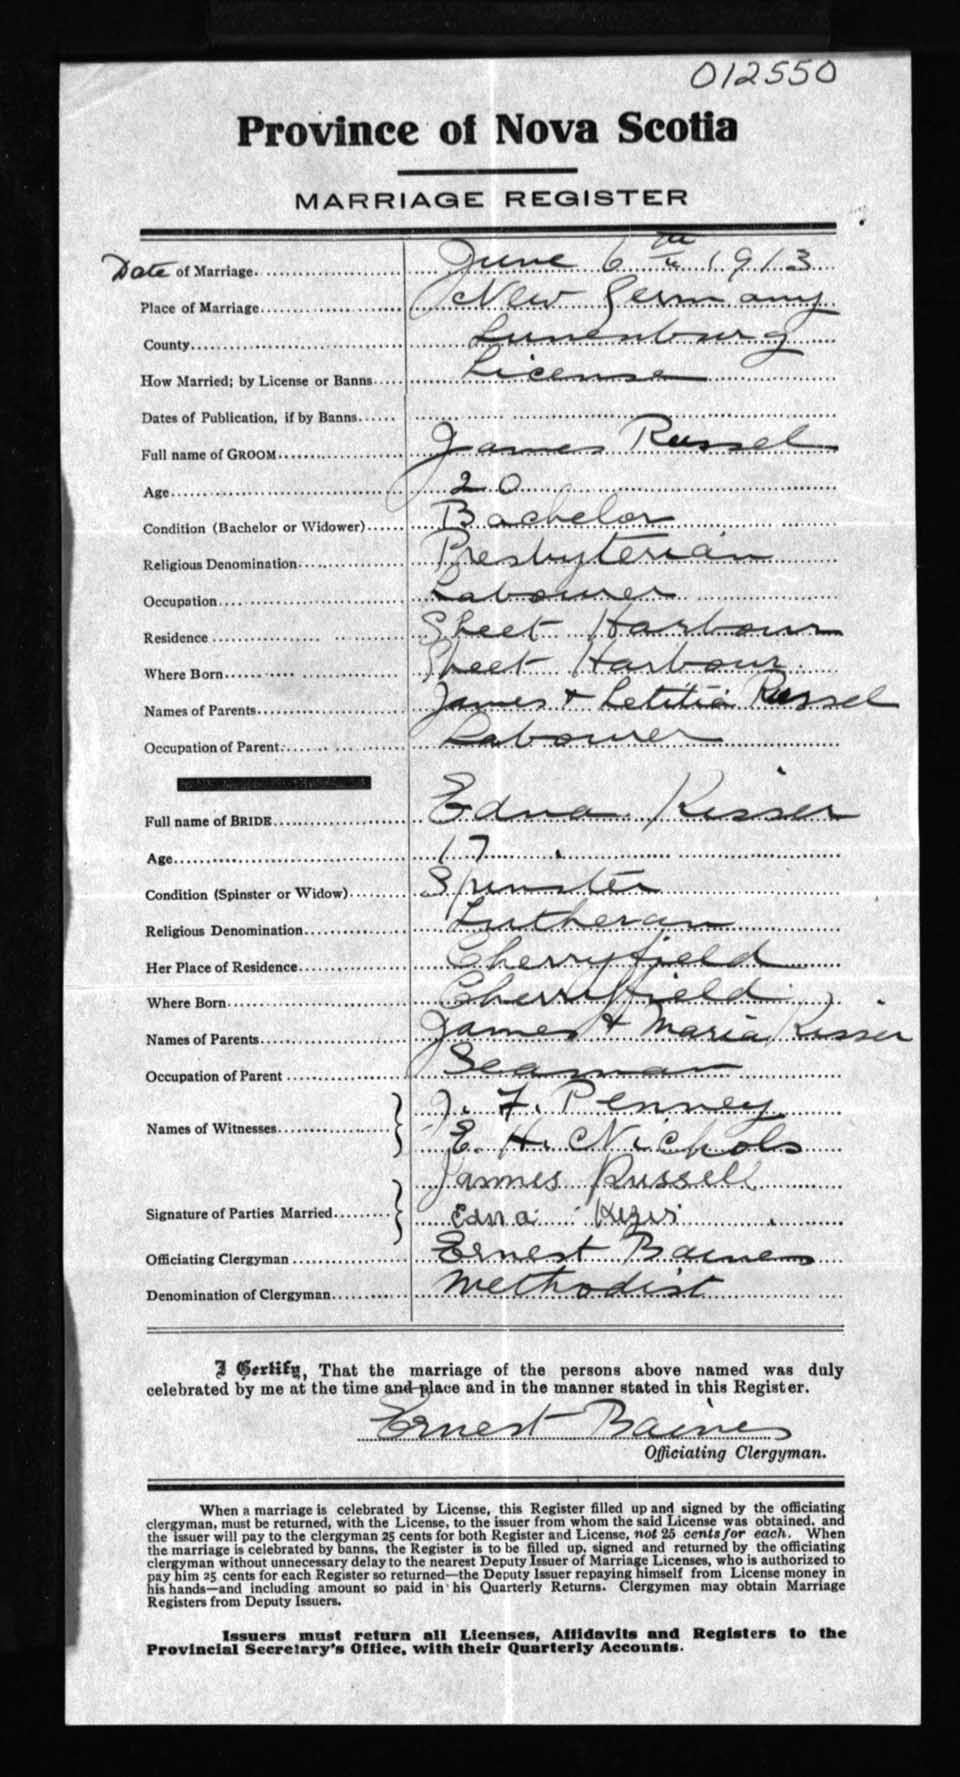 012550
Province of Nova Scotia
MARRIAGE REGISTER
Date of Marriage June 6th 1913
Place of Marriage New Germany
County Lunenburg
How Married; by License or Banns License
Dates of Publication, if by Banns
Full name of GROOM James Russel
Age 20
Condition (Bachelor or Widower) Bachelor
Religious Denomination Presbyterian
Occupation Labourer
Residence Sheet Harbour
Where Born Sheet Harbour
Names of Parents James + Letitia Russel
Occupation of Parent Labourer
Full name of BRIDE Edna Risser
Age 17
Condition (Spinster or Widow) Spinster
Religious Denomination Lutheran
Her Place of Residence Cherryfield
Where Born Cherryfield
Names of Parents James + Maria Risser
Occupation of Parent Seaman
J. F. Penney
Names of Witnesses
E. H. Nichols
James Russell
Signature of Parties Married
Edna
Officiating Clergyman Ernest Baines
Denomination of Clergyman Methodist
I Certify, That the marriage of the persons above named was duly
celebrated by me at the time and place and in the manner stated in this Register.
Ernest Baines
Officiating Clergyman.
When a marriage is celebrated by License, this Register filled up and signed by the officiating
clergyman, must be returned, with the License, to the issuer from whom the said License was obtained, and
the issuer will pay to the clergyman 25 cents for both Register and License, not 25 cents for each. When
the marriage is celebrated by banns, the Register is to be filled up, signed and returned by the officiating
clergyman without unnecessary delay to the nearest Deputy Issuer of Marriage Licenses, who is authorized to
pay him 25 cents for each Register so returned—the Deputy Issuer repaying himself from License money in
his hands—and including amount so paid in his Quarterly Returns. Clergymen may obtain Marriage
Registers from Deputy Issuers.
Issuers must return all Licenses, Affidavits and Registers to the
Provincial Secretary's Office, with their Quarterly Accounts.